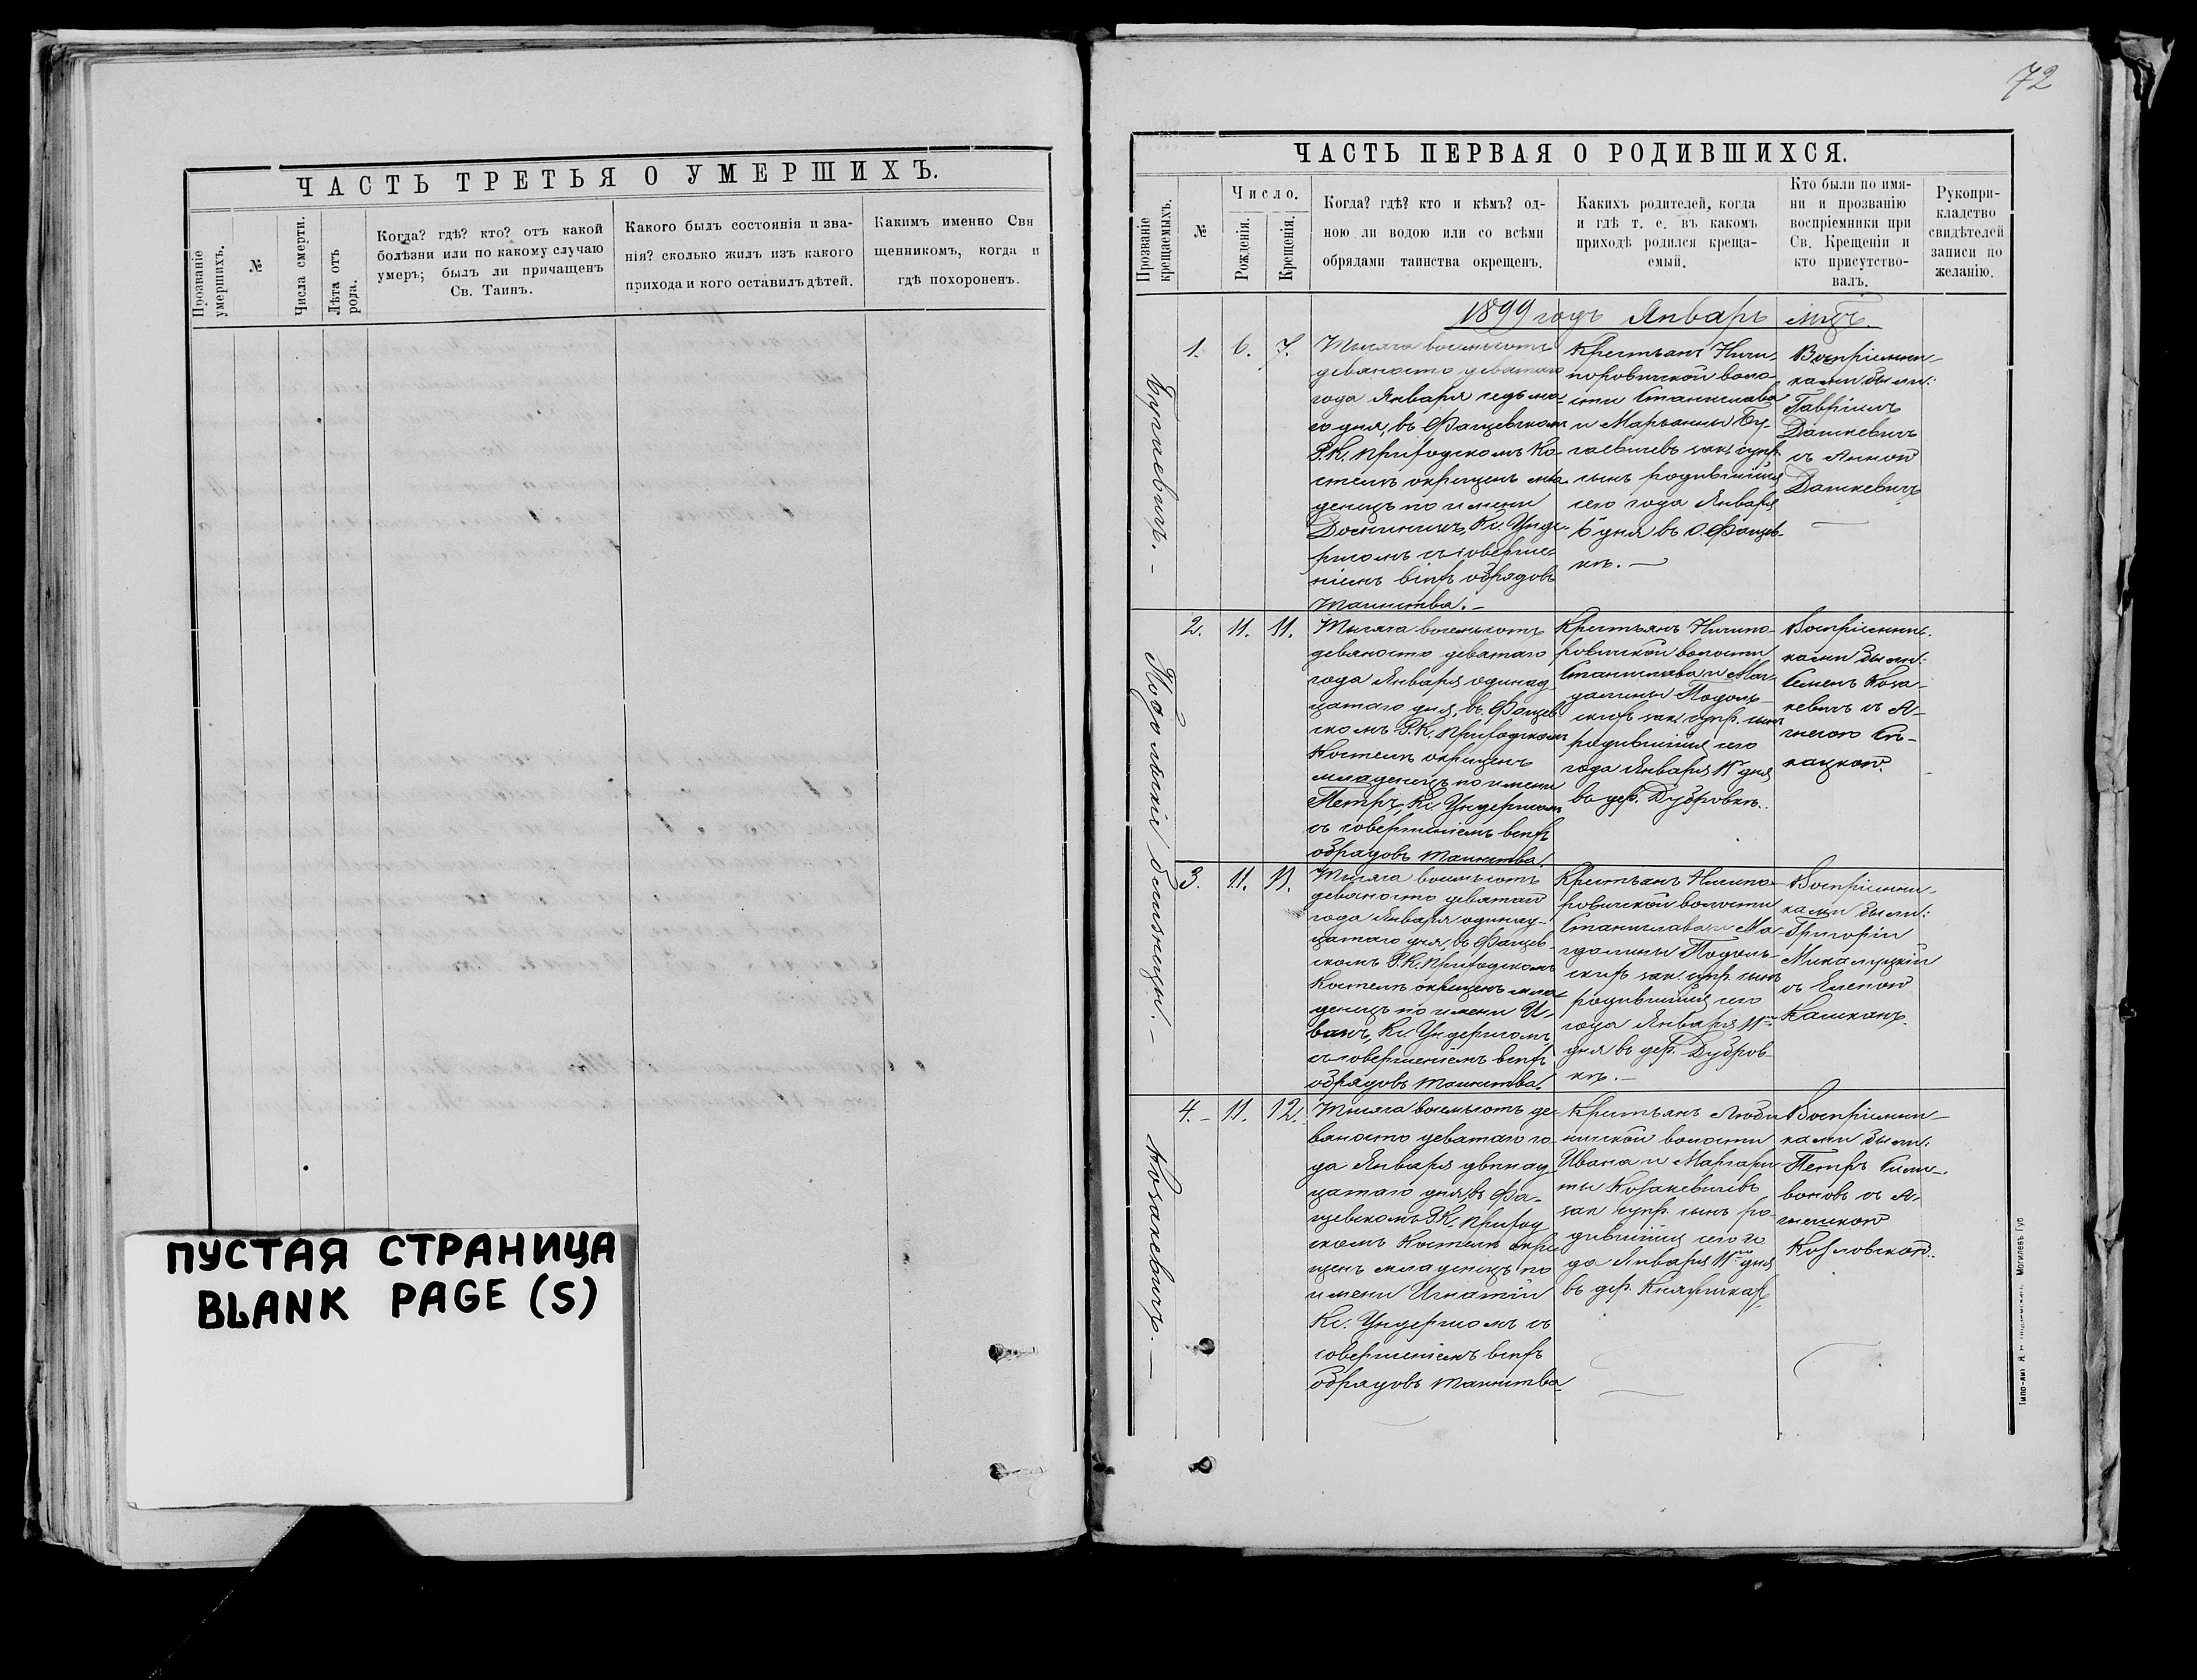 72
ЧАСТЬ ТРЕТЬЯ О УМЕРШИХЪ.
Прозваніе умершихъ.
№
Числа смерти.
Лѣта отъ рода.
Когда? гдѣ? кто? отъ какой
болѣзни или по какому случаю
умеръ; былъ ли причащенъ
Св. Таинъ.
Какого былъ состоянія и зва-
нія? сколько жилъ изъ какого
прихода и кого оставилъ дѣтей.
Какимъ именно Свя
щенникомъ, когда и
гдѣ похороненъ.
ПУСТАЯ СТРАНИЦА
BLANK PAGE (S)
ЧАСТЬ ПЕРВАЯ О РОДИВШИХСЯ.
Прозваніе крещаемыхъ.
№
Число.
Рожденія.
Крещенія.
Когда? гдѣ? кто и кѣмъ? од-
ною ли водою или со всѣми
обрядами таинства окрещенъ.
Какихъ родителей, когда
и гдѣ т. е. въ какомъ
приходѣ родился креща-
емый.
Кто были по имя-
ни и прозванію
воспріемники при
Св. Крещеніи и
кто присутство-
валъ.
Рукопри-
кладство
свидѣтелей
записи по
желанію.
1899 годъ Январь мцъ.
1. 6. 7.
Тысяча восемьсотъ
девяносто девятаго
года Января седьма-
го дня, въ Фащевском
Р.К. приходскомъ Ко-
стелѣ окрещенъ мла-
денецъ по имени
Доминикъ, Кс. Унде-
рисомъ съ соверше-
ніемъ всѣхъ обрядовъ
таинства.
Крестьянъ Ничи-
поровичской воло-
сти Станислава
и Марьянны Бу-
гаевичевъ зак. супр.
сынъ родившійся
сего года Января
6 дня въ О. Фащев-
кѣ.
Воспріемни-
ками были:
Гавріилъ
Дашкевичъ
съ Анной
Дашкевичъ
2. 11. 11.
Подольскіе близнецы.
Тысяча восемьсотъ
девяносто девятаго
года Января одинад-
цатаго дня, въ Фащев-
скомъ Р.К. приходскомъ
Костелѣ окрещенъ
младенецъ по имени
Петръ, Кс. Ундерисомъ
съ совершеніемъ всѣхъ
обрядовъ таинства.
Крестьянъ Ничипо-
ровичской волости
Станислава и Маг-
далины Подоль-
скихъ зак. супр. сынъ
родившійся сего
года Января 11 дня
въ дер. Дубровкѣ.
Воспріемни-
ками были:
Семенъ Коза-
кевичъ съ А-
3. 11. 11.
Тысяча восемьсотъ
девяносто девятаго
года Января одинад-
цатаго дня, въ Фащев-
скомъ Р.К. приходскомъ
Костелѣ окрещенъ мла-
денецъ по имени И-
ванъ, Кс. Ундерисомъ
съ совершеніемъ всѣхъ
обрядовъ таинства.
Крестьянъ Ничипо-
ровичской волости
Станислава и Ма-
гдалины Подоль-
скихъ зак. супр. сынъ
родившійся сего
года Января 11го
дня въ дер. Дубров-
кѣ.
Воспріемни-
ками были:
Григорій
съ Еленой
4. 11. 12.
Козакевичъ.
Тысяча восемьсотъ де-
вяносто девятаго го-
да Января двѣнад-
цатаго дня, въ Фа-
щевскомъ Р.К. приход
скомъ Костелѣ окре
щенъ младенецъ по
имени Игнатій
Кс. Ундерисомъ съ
совершеніемъ всѣхъ
обрядовъ таинства
Крестьянъ
волости
Ивана и Маргари-
ты Козакевичевъ
зак супр. сынъ ро
дившійся сего го
да Января 11го дня
въ дер. Княжицахъ
Воспріемни-
ками были:
Петръ Сили-
воновъ съ А-
Козловской.